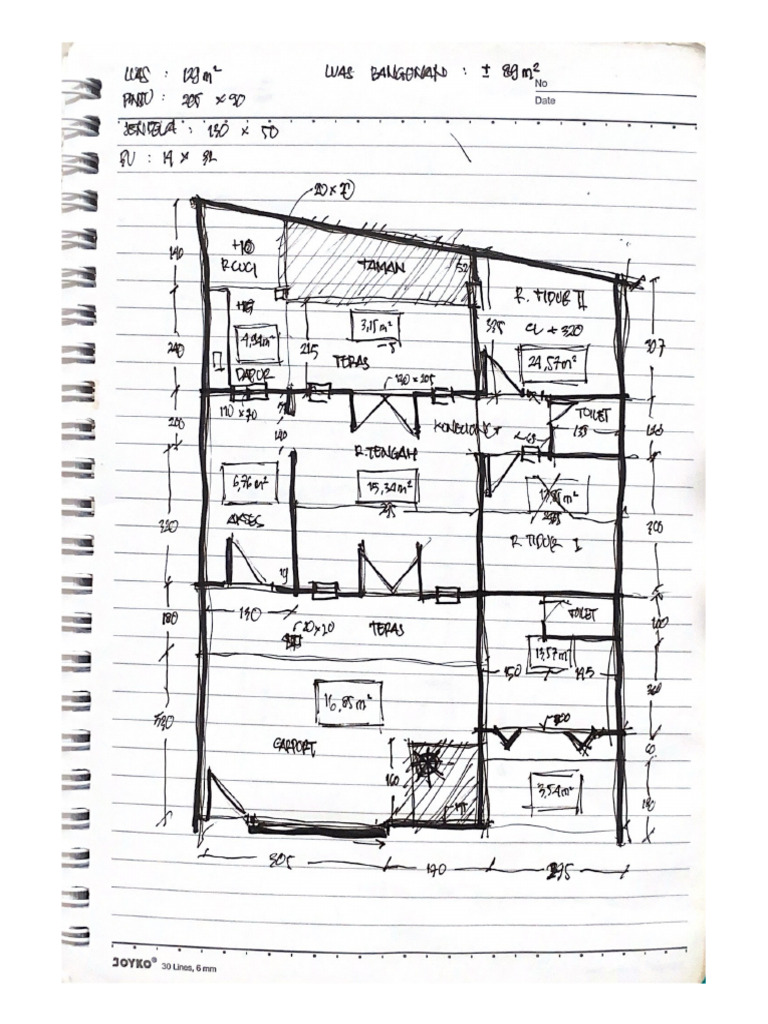 LUAS : 129 m² LUAS BANGUNAN : ± 89 m²
No
PINTU : 205 x 90
Date
JENDELA : 130 x 50
BV : 19 x 32
20 x 20
140
R CUCI
TAMAN
52
R. TIDUR II
+10
335
CL + 320
307
3,15 m²
-5
4,94 m²
24,57 m²
240
215
TERAS
DAPUR
120 x 205
110 x 70
TOILET
200
140
135
R.TENGAH
6,76 m²
15,34 m²
295
AKSES
320
300
R TIDUR I
19
130
TOILET
180
20 x 20
TERAS
13,57 m²
150
145
16,85 m²
200
CARPORT
60
160
3,54 m²
305
170
295
JOYKO®
30 Lines, 6 mm